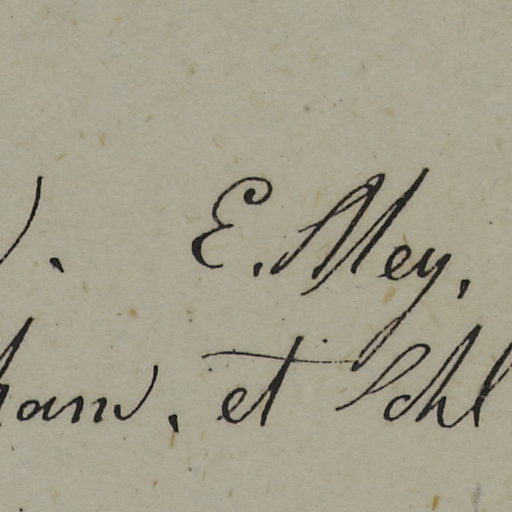 ). E. Mey.
ham. et Schl